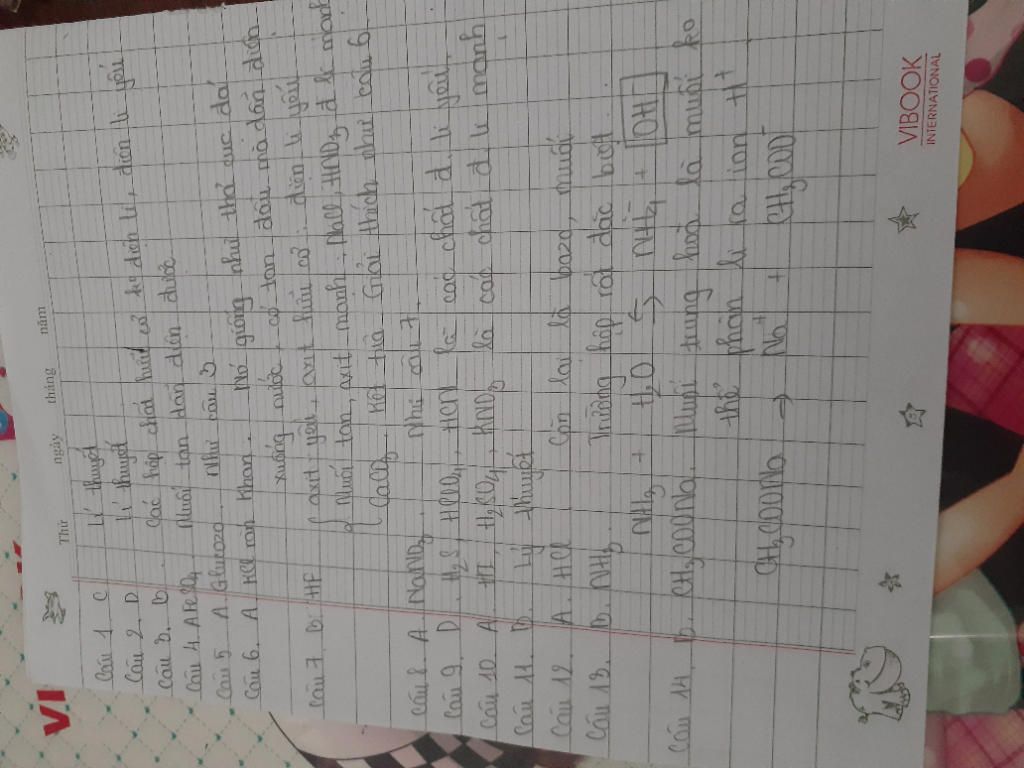 Thứ ngày tháng năm
Câu 1. C Lí thuyết
Câu 2. D Lí thuyết
Câu 3. D. Các hợp chất hữu cơ ko điện li, điện li yếu
Câu 4. Muối tan dẫn điện được
Câu 5 A Glucozo. Như câu 3
Câu 6. A HCl ran khan. nó giống như thể cục đá
xuống nước, có tan đâu mà dẫn điện
Câu 7. D. HF { axit yếu, axit hữu cơ. điện li yếu
{ Muối tan, axit mạnh: HNO3 đ li mạnh
{ CaCO3. kết tủa Giải thích như câu 6
Câu 8. A NaNO3. Như câu 7.
Câu 9. D. H2S, HClO, HCN là các chất đ li yếu.
Câu 10 A. HI, các chất đ li mạnh
Câu 11 D. Lý thuyết
Câu 12. A. HCl Còn lại là bazo, muối
Câu 13. D. NH3. Trường hợp rất đặc biệt.
NH3 + H2O ⇆ NH4+ + OH-
Câu 14. D. CH3COONa. Muối trung hoà là muối ko
thể phân li ra ion H+
CH3COONa → Na+ + CH3COO-
VIBOOK
INTERNATIONAL
VI